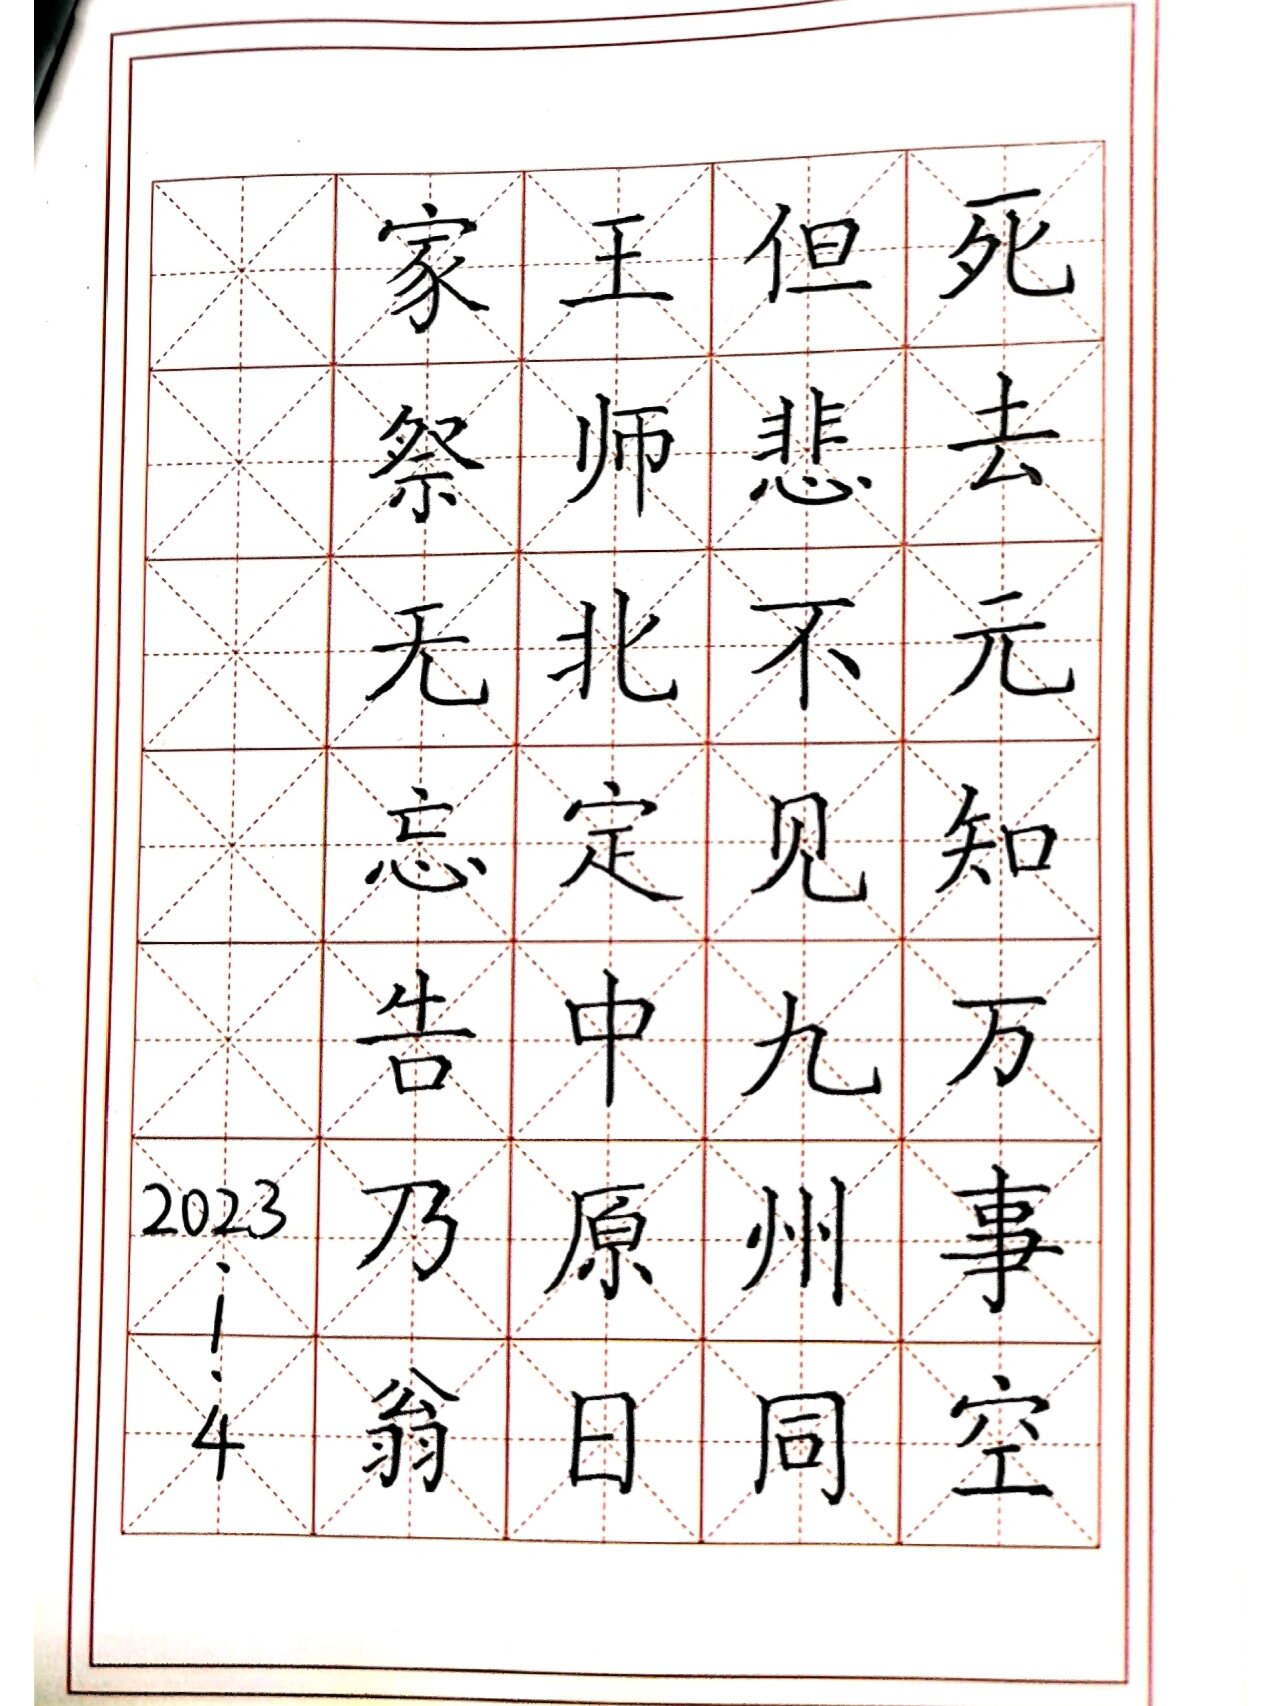 死去元知万事空
但悲不见九州同
王师北定中原日
家祭无忘告乃翁
2023.1.4